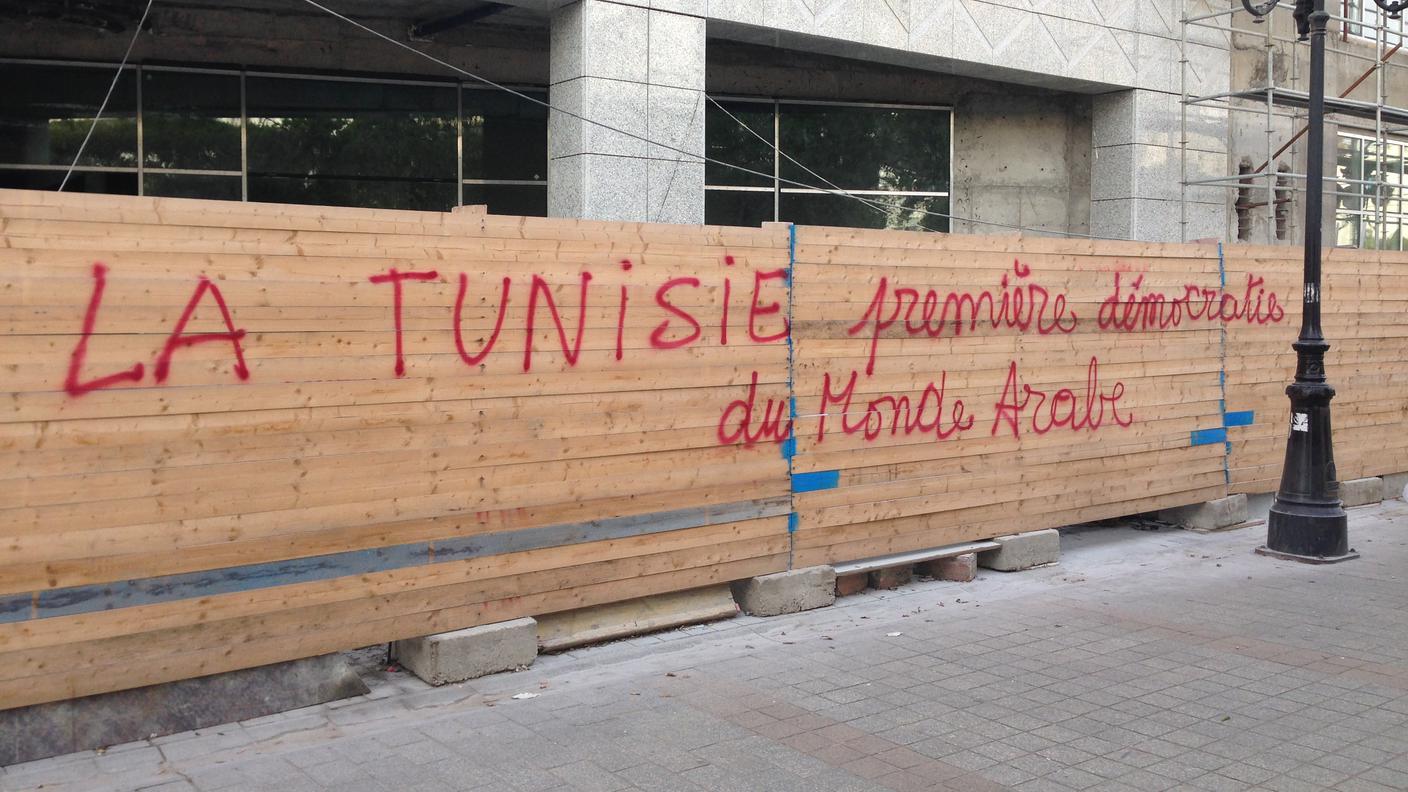 LA TUNiSiE première démocratie
du Monde Arabe